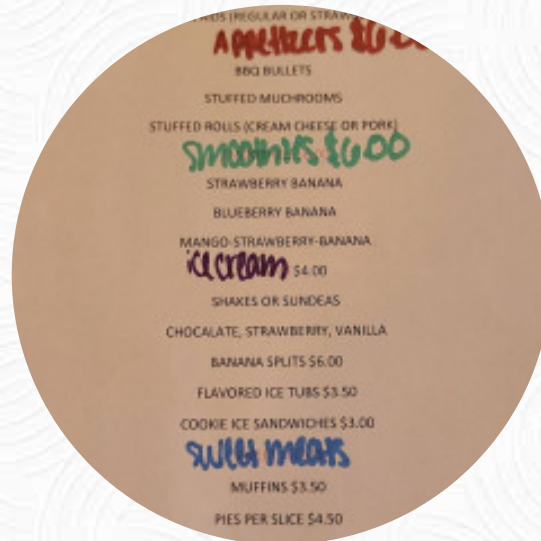 (REGULAR OR STRAW
APPETIZERS $6.00
BBQ BULLETS
STUFFED MUCHROOMS
STUFFED ROLLS (CREAM CHEESE OR PORK)
SMOOTHIES $6.00
STRAWBERRY BANANA
BLUEBERRY BANANA
MANGO-STRAWBERRY-BANANA
ice cream $4.00
SHAKES OR SUNDEAS
CHOCALATE, STRAWBERRY, VANILLA
BANANA SPLITS $6.00
FLAVORED ICE TUBS $3.50
COOKIE ICE SANDWICHES $3.00
sweet meats
MUFFINS $3.50
PIES PER SLICE $4.50